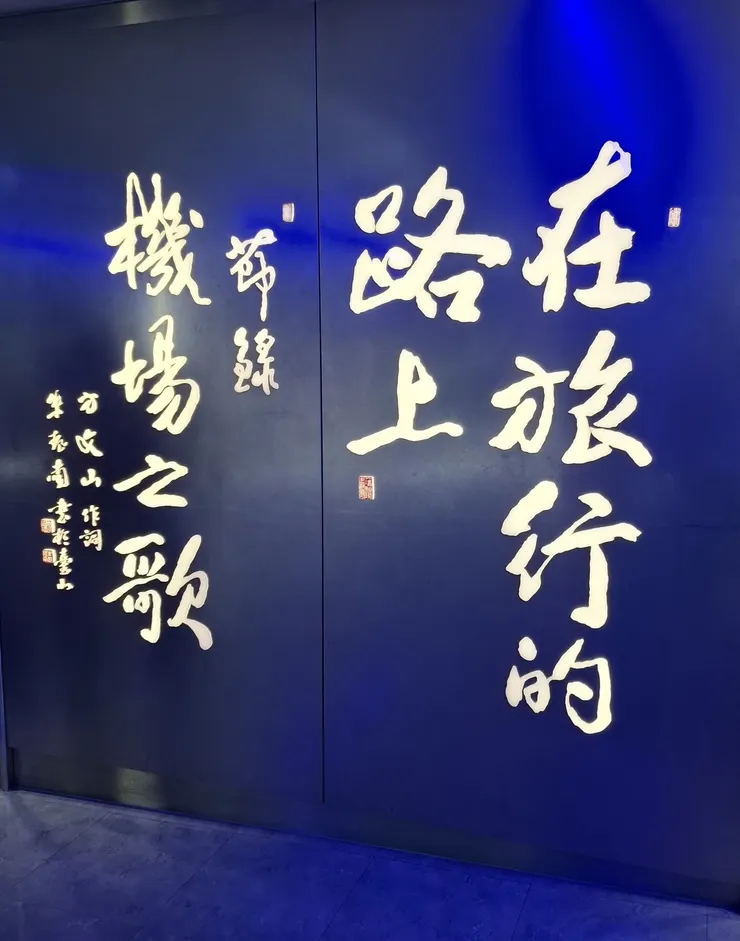 在旅行的
路上
節錄
機場之歌
方文山 作詞
朱振南 書於臺山